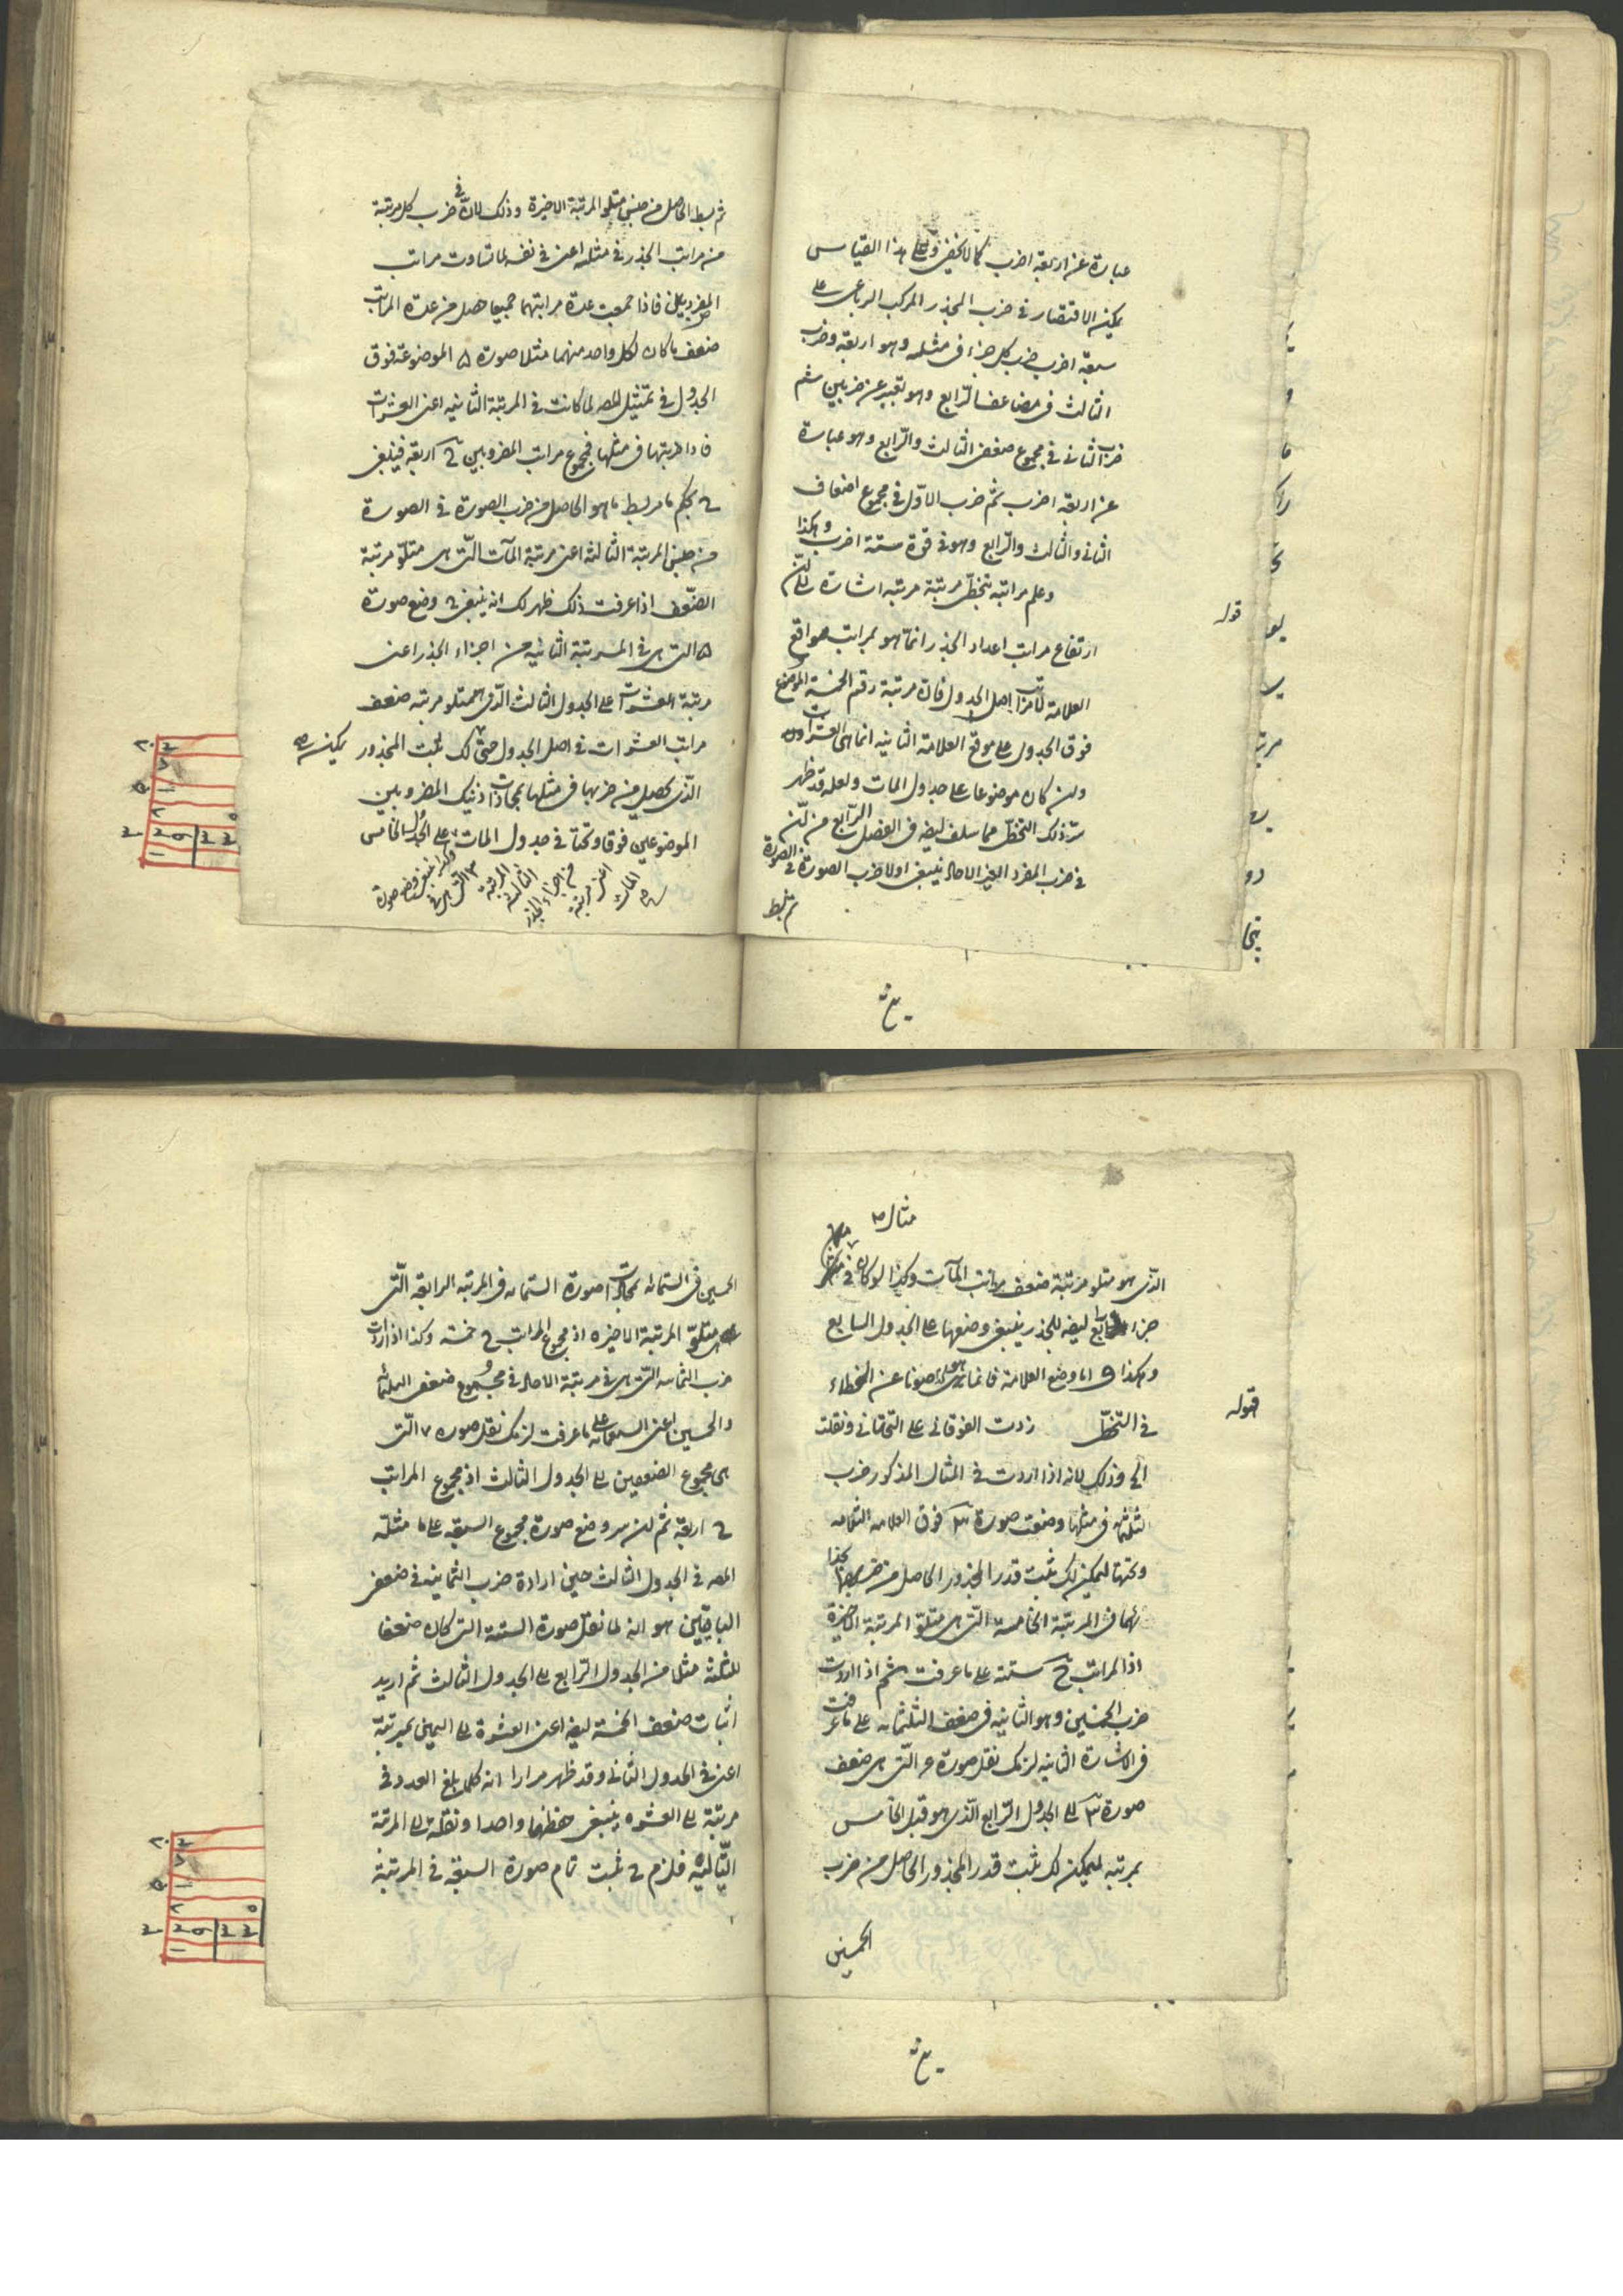 عبارة عن اربعة اضرب كما لا يخفى وعلى هذا القياس
يمكن الاقتصار في ضرب الجذر المركب الرباعي على
سبعة اضرب ضرب كل جزء في مثله وهو اربعة وضرب
الثالث في مضاعف الرابع وهو تعبير عن ضربين ثم
ضرب الثاني في مجموع ضعفي الثالث والرابع وهو عبارة
عن اربعة اضرب ثم ضرب الاول في مجموع اضعاف
الثاني والثالث والرابع وهو في قوة ستة اضرب وهكذا
قوله وعلم مراتبه بتخطى مرتبة مرتبة اشارة الى ان
ارتفاع مراتب اعداد الجذر انما هو بمراتب مواقع
العلامة لا مراتب اصل الجدول فان مرتبة رقم الخمسة الموضوع
فوق الجدول على موقع العلامة الثانية انما هى العشرات
وان كان موضوعا على جداول المات ولعله قد ظهر
سر ذلك التخطى مما سلف ايضه في الفصل الرابع من ان
في ضرب المفرد الغير الاحاد ينبغى اولا ضرب الصورة في الصورة
ثم بسط
ثم بسط الحاصل من جنس متلو المرتبة الاخيرة وذلك لان في ضرب كل مرتبة
من مراتب الجذر في مثله اعنى في نفسه لما تساوت مراتب
المضروبين فاذا جمعت عدة مراتبهما جميعا حصل من عدة المراتب
ضعف ما كان لكل واحد منهما مثلا صورة ۵ الموضوعة فوق
الجدول في تمثيل المصه لما كانت في المرتبة الثانية اعنى العشرات
فاذا ضربتها في مثلها فمجموع مراتب المضروبين ح اربعة فينبغى
ح بحكم ما مر بسط ما هو الحاصل من ضرب الصورة في الصورة
من جنس المرتبة الثالثة اعنى مرتبة المآت التى هى متلو مرتبة
الضعف اذا عرفت ذلك ظهر لك انه ينبغى ح وضع صورة
۵ التى هى في المرتبة الثانية من اجزاء الجذر اعنى
مرتبة العشرات على الجدول الثالث الذى هو متلو مرتبة ضعف
مراتب العشرات في اصل الجدول حتى يمكن لك ثبت المجذور
الذى يحصل من ضربها في مثلها بمحاذات ذينك المضروبين
الموضوعين فوقا وتحتا في جدول المات وكذا ينبغى وضع صورة
۳ التى هى في المرتبة الثالثة من اجزاء الجذر اعنى مرتبة المات على الجدول الخامس
مثال
الذى هو متلو مرتبة ضعف مراتب المآت وكذا لو كان في
جزء رابع ايضه للجذر ينبغى وضعها على الجدول السابع
وهكذا واما وضع العلامة فانما هى صونا عن الخطاء
في التخطى قوله زدت الفوقانى على التحتانى ونقلت
الى وذلك لانه اذا اردت في المثال المذكور ضرب
الثلثمائه في مثلها وضعت صورة ۳ فوق العلامه الثالثه
وتحتها ليمكن لك ثبت قدر المجذور الحاصل من ضربها
في المرتبة الخامسة التى هى متلو المرتبة الاخيرة
اذ المراتب ح ستة على ما عرفت ثم اذا اردت
ضرب الخمسين وهو الثانية في ضعف الثلثمائه على ما عرفت
في الاشارة الثانية لزمك نقل صورة ۶ التى هى ضعف
صورة ۳ الى الجدول الرابع الذى هو قبل الخامس
بمرتبه ليمكن لك ثبت قدر المجذور الحاصل من ضرب
الخمسين
الخمسين في الستمائه بمحاذات صورة الستمائه في المرتبه الرابعه التى
هى متلو المرتبة الاخيره اذ مجموع المراتب ح خمسة وكذا اذا اردت
ضرب الثمانيه التى هى في مرتبة الاحاد في مجموع ضعف الثلثمائه
والخمسين اعنى السبعمائه على ما عرفت لزمك نقل صوره ۷ التى
هى مجموع الضعفين الى الجدول الثالث اذ مجموع المراتب
ح اربعة ثم ان سر وضع صورة مجموع السبعه على ما مثله
المصه في الجدول الثالث حين ارادة ضرب الثمانيه في ضعف
الباقيين هو انه لما نقل صورة الستة التى كان ضعفا
للثلثة مثلا من الجدول الرابع الى الجدول الثالث ثم اريد
اثبات ضعف الخمسة ايضه اعنى العشرة الى اليمين بمرتبة
اعنى في الجدول الثانى وقد ظهر مرارا انه كلما بلغ العدد في
مرتبة الى العشره ينبغى حفظها واحدا ونقله الى المرتبة
التاليه فلزم ح ثبت تمام صورة السبعة في المرتبة